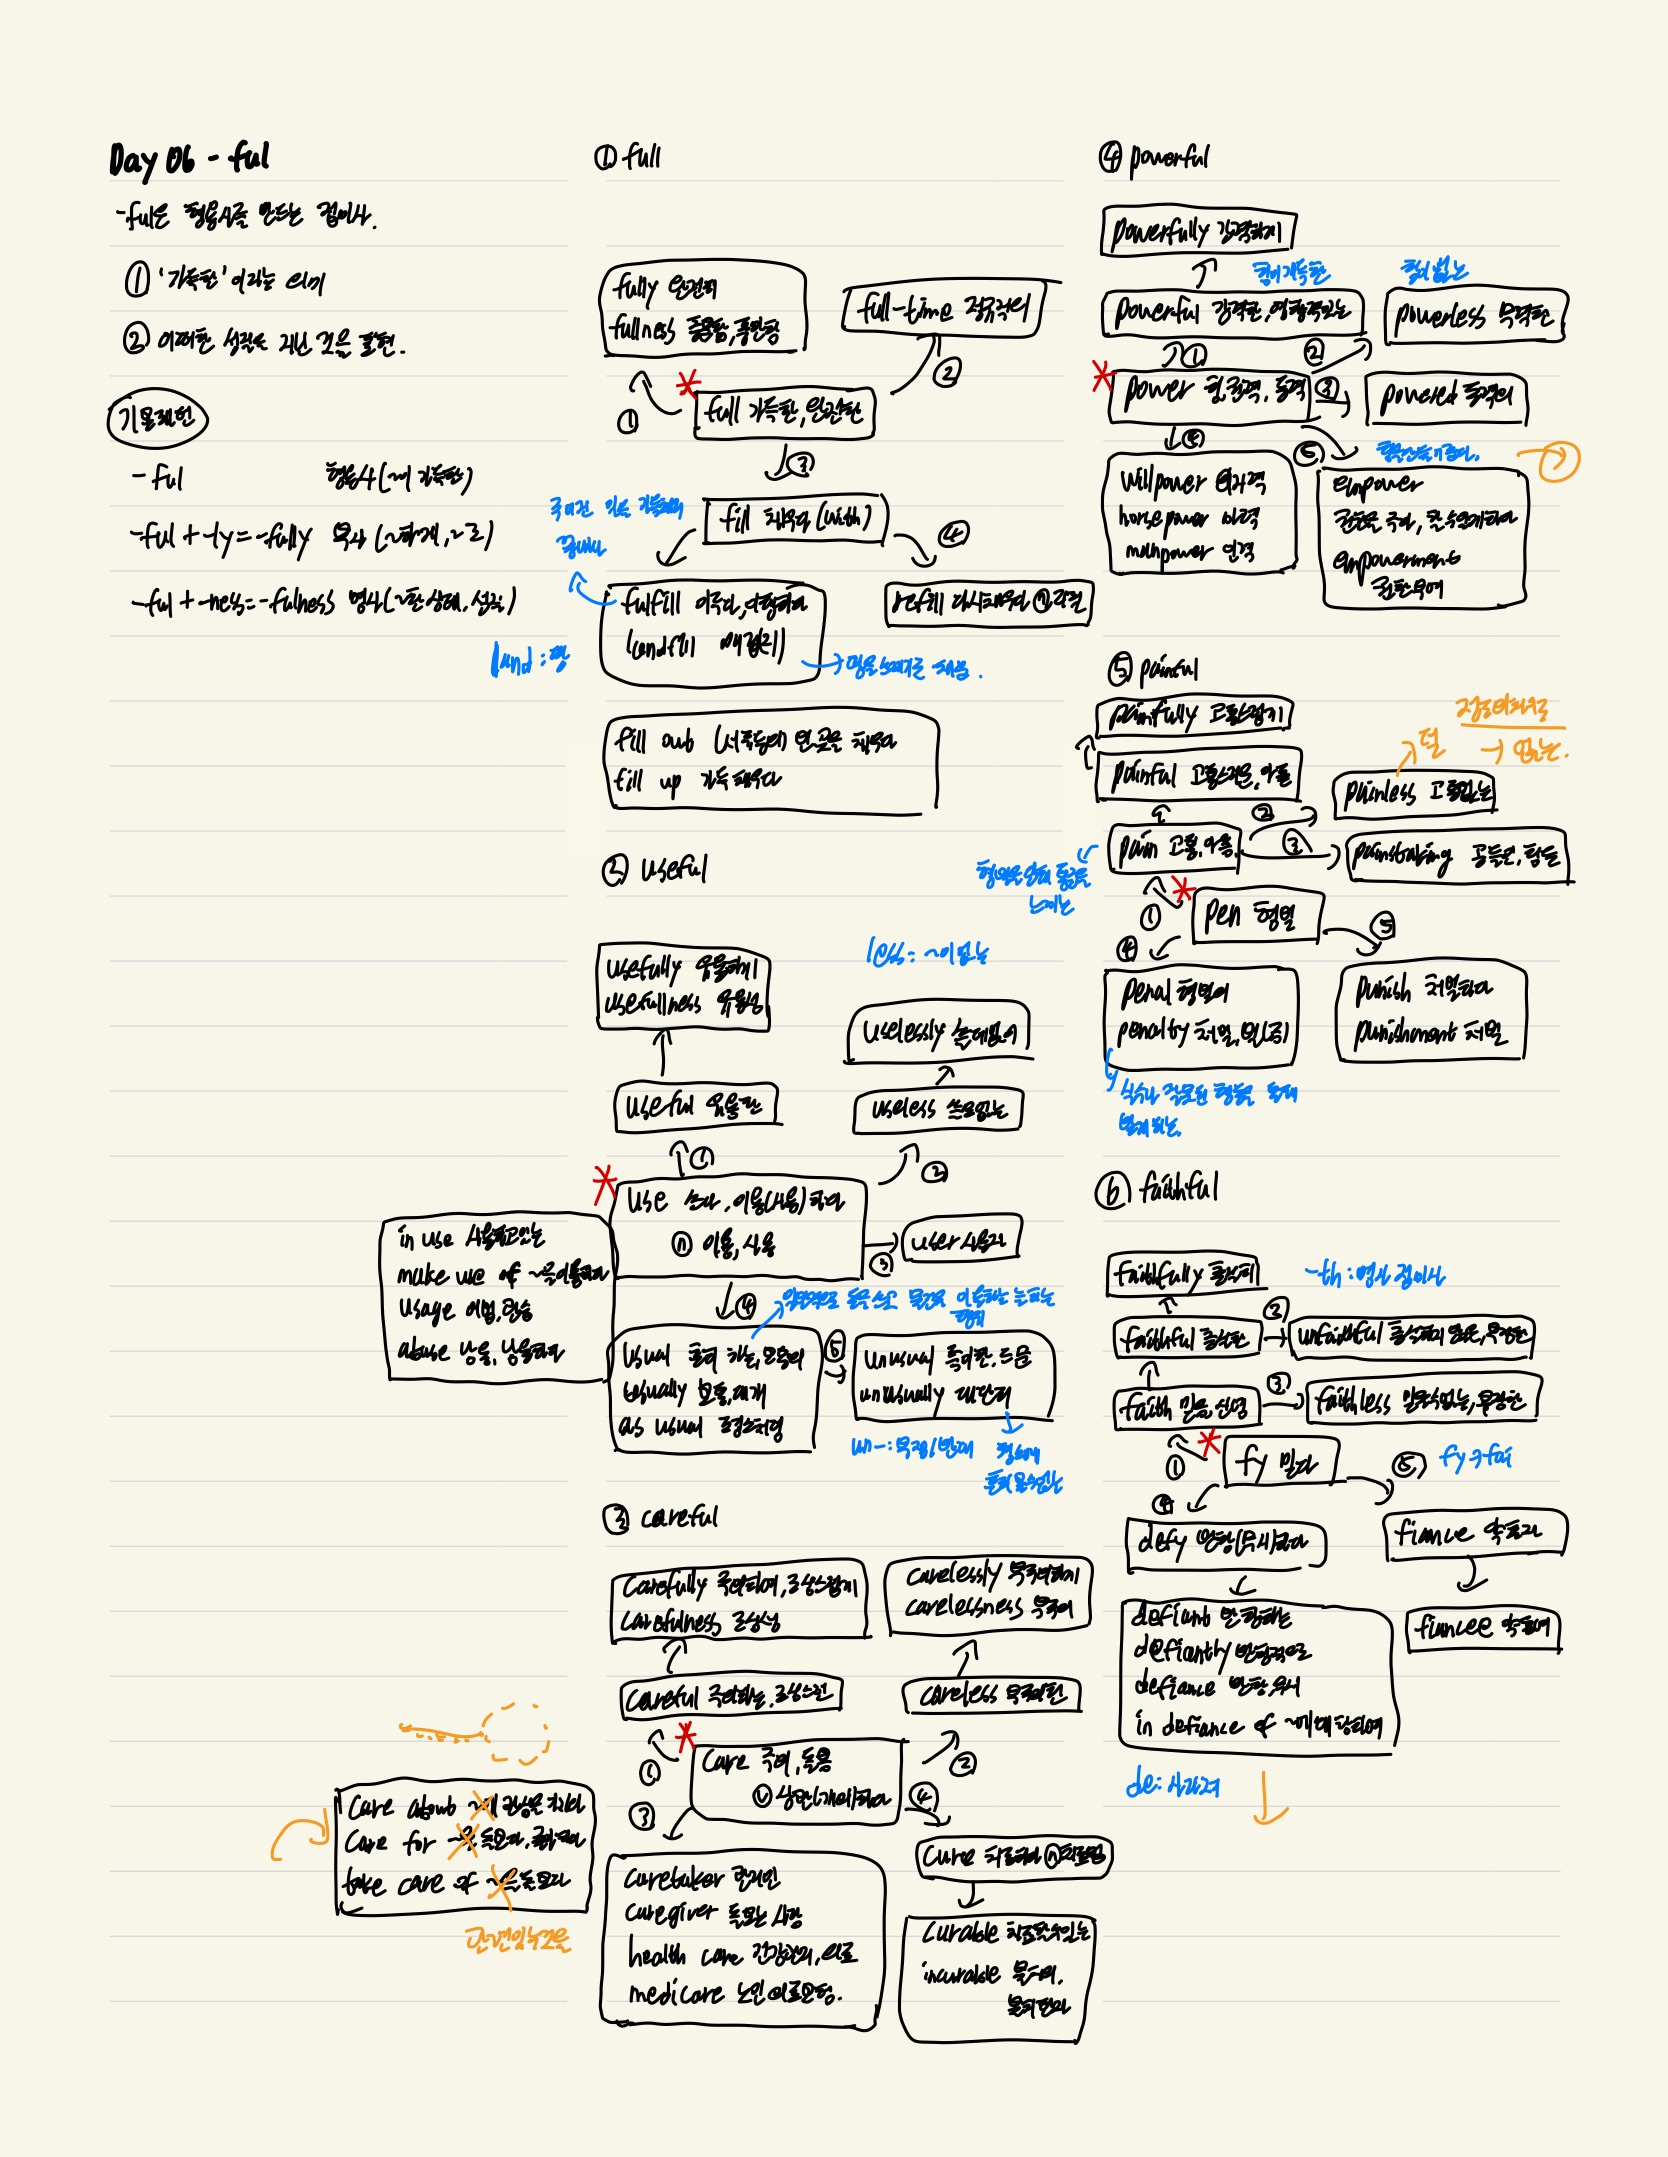 Day 06 - ful
-ful은 형용사를 만드는 접미사.
① '가득한' 이라는 의미
② 어떠한 성질을 지닌 것을 표현.
기본패턴
-ful 형용사(~에 가득한)
-ful + -ly = -fully 부사 (~하게, ~로)
-ful + -ness = -fulness 명사(~한 상태, 성질)
① full
fully 완전히
fullness 충만함, 풍만함
full-time 정규직의
②
①
full 가득한, 완전한
③
fill 채우다 (with)
④
fulfill 이루다, 이행하다
landfill 매립(지)
land : 땅
땅을 쓰레기로 채움.
refill 다시채우다 ⓝ리필
fill out (서류등의) 빈곳을 채우다
fill up 가득 채우다
② useful
usefully 유용하게
usefullness 유용성
less : ~이 없는
uselessly 쓸데없이
useful 유용한
useless 쓰모없는
①
②
use 쓰다, 이용(사용)하다
ⓝ 이용, 사용
③
user 사용자
in use 사용되고있는
make use of ~을 이용하다
usage 어법, 관습
abuse 남용, 남용하다
④
usual 흔히 하는, 보통의
usually 보통, 대개
as usual 평소처럼
⑤
unusual 특이한, 드문
unusually 대단히
un- : 부정/반대
평소에
흔히 볼수없는
③ careful
carefully 주의하여, 조심스럽게
carefulness 조심성
carelessly 부주의하게
carelessness 부주의
careful 주의하는, 조심스런
careless 부주의한
①
②
care 주의, 돌봄
ⓥ 상관(개의)하다
③
④
care about ~에 관심을 가지다
care for ~을 돌보다, 좋아하다
take care of ~을 돌보다
caretaker 관리인
caregiver 돌보는 사람
health care 건강관리, 의료
medicare 노인 의료보험.
cure 치료하다 ⓝ치료법
curable 치료할수있는
incurable 불치의,
불치환자
④ powerful
powerfully 강력하게
힘이 가득한
힘이 없는
powerful 강력한, 영향력있는
powerless 무력한
①
②
power 힘, 권력, 동력
③
powered 동력의
④
⑤
willpower 의지력
horsepower 마력
manpower 인력
empower
권한을 주다, 할 수 있게하다
empowerment
권한부여
⑤ painful
painfully 고통스럽게
painful 고통스러운, 아픈
painless 고통없는
→ 없는.
②
pain 고통, 아픔
③
painstaking 공들인, 힘든
①
pen 형벌
⑤
④
penal 형벌의
penalty 처벌, 벌(금)
punish 처벌하다
punishment 처벌
⑥ faithful
faithfully 충실히
-th : 명사 접미사
faithful 충실한
②
unfaithful 충실하지 않은, 부정한
faith 믿음, 신앙
③
faithless 믿을수없는, 부정한
①
fy 믿다
⑤
fy → fai
④
defy 반항(무시)하다
fiance 약혼자
defiant 반항하는
defiantly 반항적으로
defiance 반항, 무시
in defiance of ~에 대항하여
fiancee 약혼녀
de : 사라져